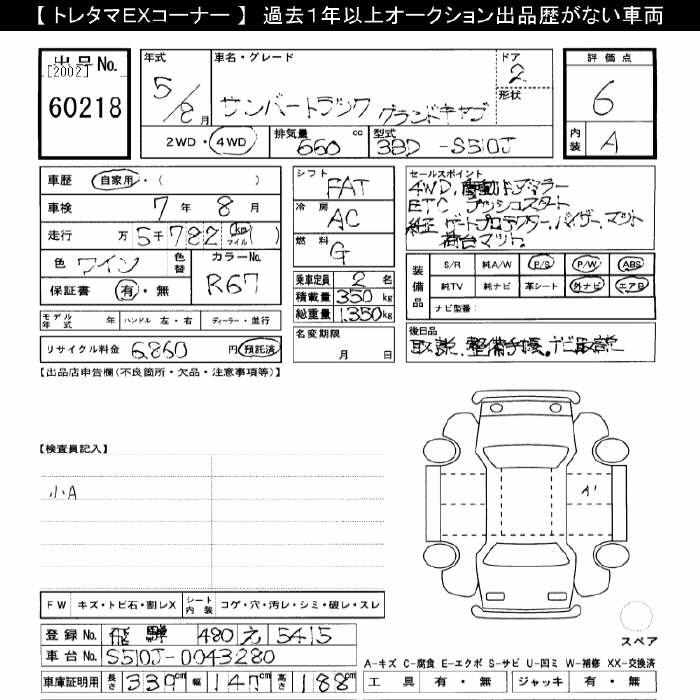 【 トレタマEXコーナー 】 過去1年以上オークション出品歴がない車両
出品No.
[2002]
60218
年式
5/8月
車名・グレード
サンバートラック グランドキャブ
ドア
2
形状
評価点
6
内装
A
2WD・4WD
排気量 660 cc
型式 3BD-S510J
車歴 自家用・( )
車検 7年 8月
走行 万5千782 km マイル
色 ワイン
色替
カラーNo.
R67
保証書 有・無
モデル年式 年
ハンドル 左・右
ディーラー・並行
リサイクル料金 6,860 円 預託済
シフト FAT
冷房 AC
燃料 G
乗車定員 2 名
積載量 350 kg
総重量 1,350 kg
名変期限
月 日
セールスポイント
4WD、電動ドアミラー
ETC プッシュスタート
純正 ゲートプロテクター、バイザー、マット
荷台マット。
装備品
S/R 純A/W P/S P/W ABS
純TV 純ナビ 革シート 外ナビ エアB
ナビ型番:
後日品
取説、整備手帳。ナビ取説
【出品店申告欄(不良箇所・欠品・注意事項等)】
【検査員記入】
小A
A1
FW キズ・トビ石・割レX
シート内装 コゲ・穴・汚レ・シミ・破レ・スレ
登録No. 飛騨 480 え 5415
車台No. S510J-0043280
車庫証明用 長さ 339cm 幅 147cm 高さ 188cm
スペア
A-キズ C-腐食 E-エクボ S-サビ U-凹ミ W-補修 XX-交換済
工具 有・無 ジャッキ 有・無